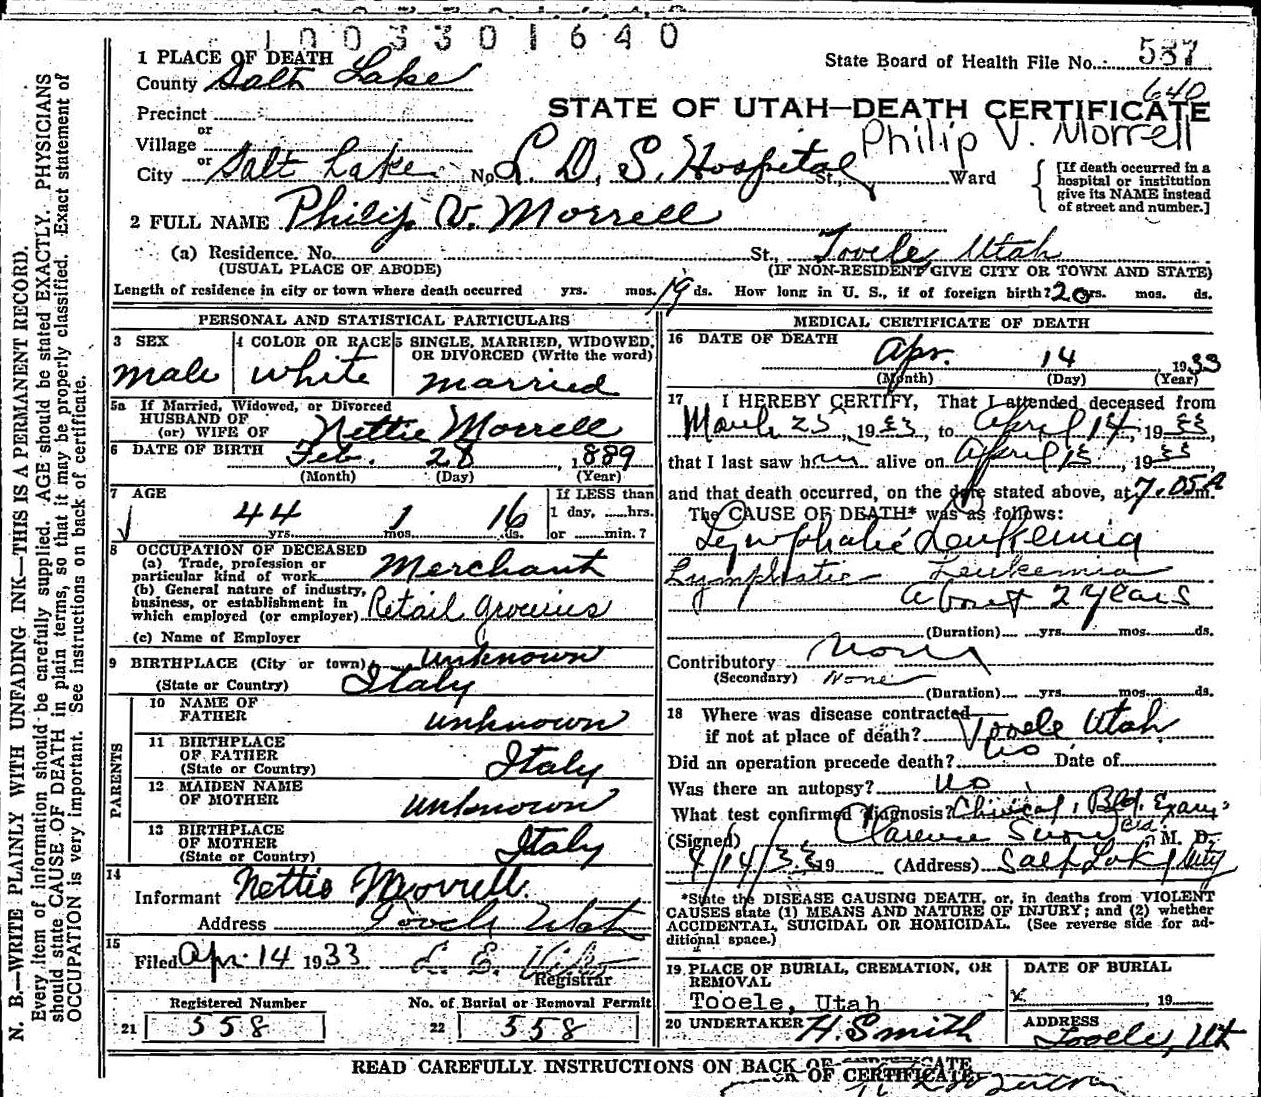 1003301640
1 PLACE OF DEATH
State Board of Health File No. 587
County Salt Lake
640
Precinct
STATE OF UTAH—DEATH CERTIFICATE
or
Village
Philip V. Morrell
or
City Salt Lake No. L. D. S. Hospital St., Ward
[If death occurred in a
hospital or institution
give its NAME instead
of street and number.]
2 FULL NAME Philip V. Morrell
(a) Residence. No. St., Tooele, Utah
(USUAL PLACE OF ABODE) (IF NON-RESIDENT GIVE CITY OR TOWN AND STATE)
Length of residence in city or town where death occurred yrs. mos. 19 ds. How long in U. S., if of foreign birth? 20 yrs. mos. ds.
PERSONAL AND STATISTICAL PARTICULARS
3 SEX
male
4 COLOR OR RACE
white
5 SINGLE, MARRIED, WIDOWED,
OR DIVORCED (Write the word)
married
5a If Married, Widowed, or Divorced
HUSBAND OF
(or) WIFE OF Nettie Morrell
6 DATE OF BIRTH Feb. 28, 1889
(Month) (Day) (Year)
7 AGE
44 yrs. 1 mos. 16 ds.
If LESS than
1 day, hrs.
or min.?
8 OCCUPATION OF DECEASED
(a) Trade, profession or
particular kind of work Merchant
(b) General nature of industry,
business, or establishment in
which employed (or employer) Retail groceries
(c) Name of Employer
9 BIRTHPLACE (City or town) unknown
(State or Country) Italy
PARENTS
10 NAME OF
FATHER unknown
11 BIRTHPLACE
OF FATHER
(State or Country) Italy
12 MAIDEN NAME
OF MOTHER unknown
13 BIRTHPLACE
OF MOTHER
(State or Country) Italy
14
Informant Nettie Morrell
Address Tooele Utah
15
Filed Apr. 14 1933
Registrar
Registered Number
21 558
No. of Burial or Removal Permit
22 558
MEDICAL CERTIFICATE OF DEATH
16 DATE OF DEATH
Apr. 14 1933
(Month) (Day) (Year)
17 I HEREBY CERTIFY, That I attended deceased from
March 25, 1933, to April 14, 1933,
that I last saw him alive on April 13, 1933
and that death occurred, on the date stated above, at 7.05 A m.
The CAUSE OF DEATH* was as follows:
Lymphatic Leukemia
Lymphatic Leukemia
about 2 years
(Duration) yrs. mos. ds.
Contributory None
(Secondary) None
(Duration) yrs. mos. ds.
18 Where was disease contracted
if not at place of death? Tooele Utah
Did an operation precede death? no Date of
Was there an autopsy? no
What test confirmed diagnosis? Clinical, Bld. Exam,
(Signed) Clarence Snow M. D.
4/14/33 19 (Address) Salt Lake City
*State the DISEASE CAUSING DEATH, or, in deaths from VIOLENT
CAUSES state (1) MEANS AND NATURE OF INJURY; and (2) whether
ACCIDENTAL, SUICIDAL OR HOMICIDAL. (See reverse side for ad-
ditional space.)
19 PLACE OF BURIAL, CREMATION, OR
REMOVAL
Tooele, Utah
DATE OF BURIAL
x , 19
20 UNDERTAKER H. Smith
ADDRESS
Tooele, Ut
READ CAREFULLY INSTRUCTIONS ON BACK OF CERTIFICATE
CK OF CERTIFICATE
N. B.—WRITE PLAINLY WITH UNFADING INK—THIS IS A PERMANENT RECORD.
Every item of information should be carefully supplied. AGE should be stated EXACTLY. PHYSICIANS
should state CAUSE OF DEATH in plain terms, so that it may be properly classified. Exact statement of
OCCUPATION is very important. See instructions on back of certificate.